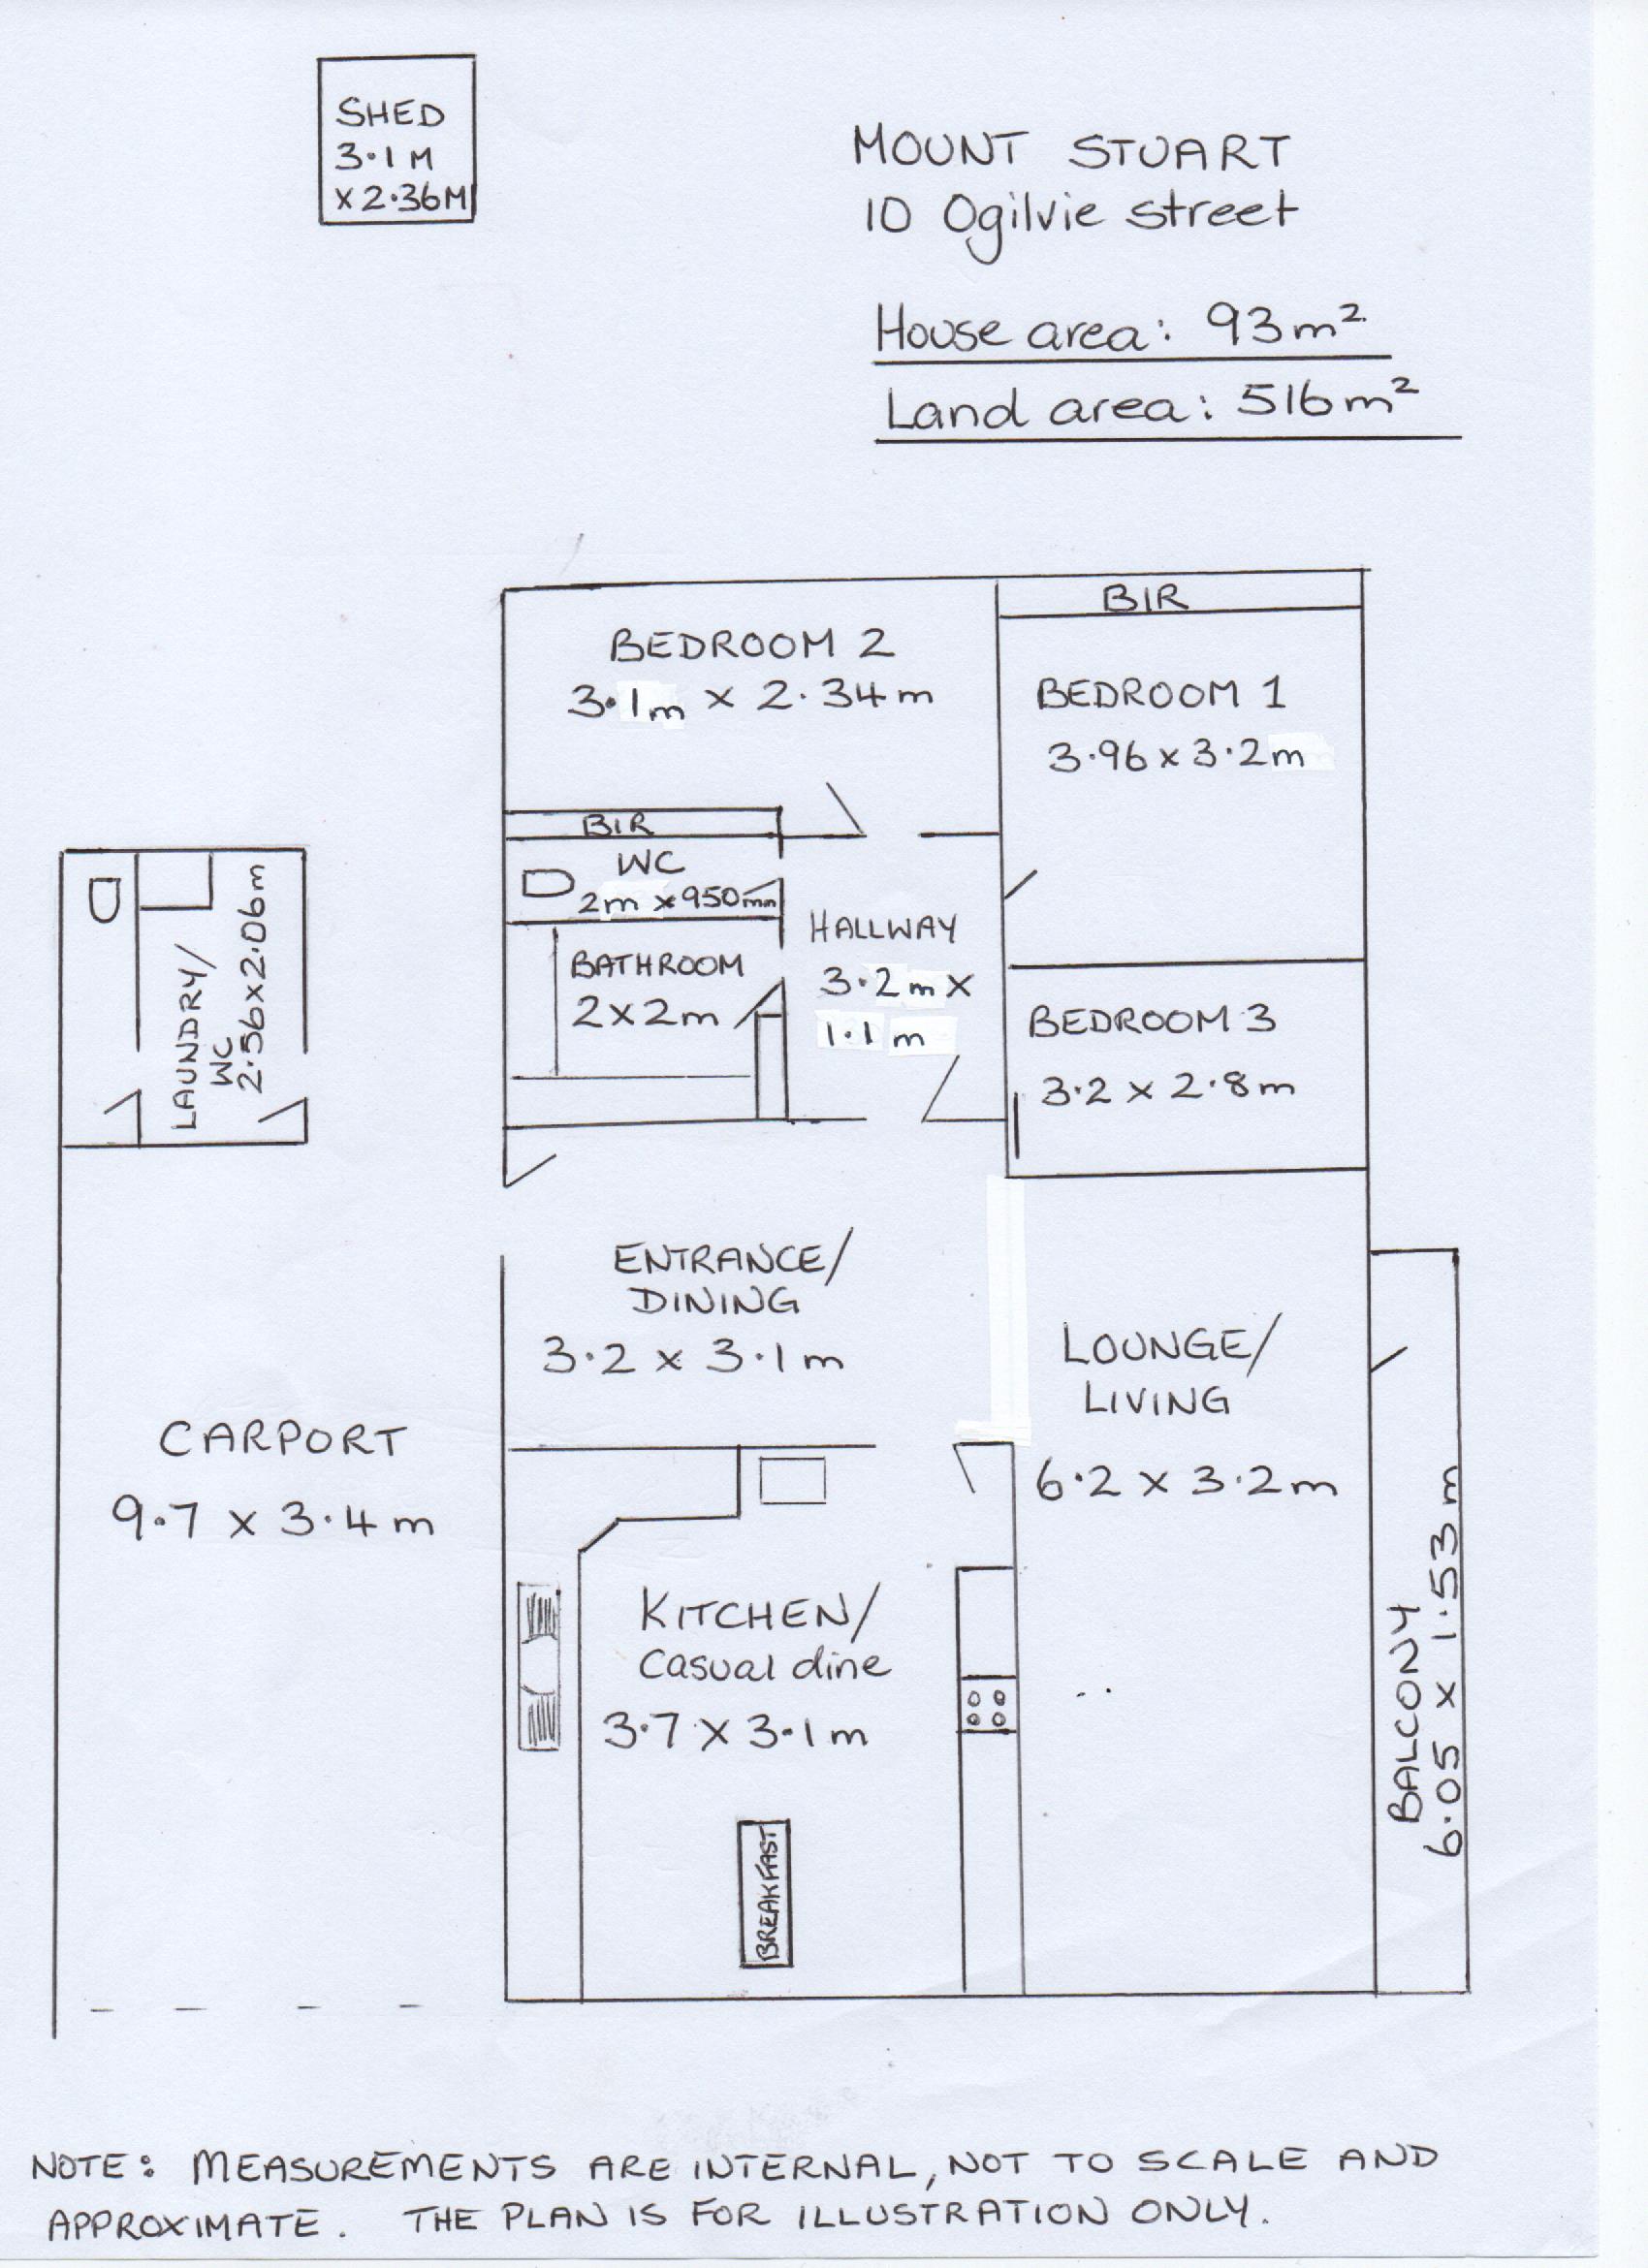 SHED
3.1M
x 2.36M
MOUNT STUART
10 Ogilvie Street
House area: 93m²
Land area: 516m²
BIR
BEDROOM 2
3.1m x 2.34m
BEDROOM 1
3.96 x 3.2m
BIR
WC
2m x 950mm
HALLWAY
3.2m x
1.1m
BATHROOM
2 x 2m
LAUNDRY/
WC
2.56 x 2.06m
BEDROOM 3
3.2 x 2.8m
ENTRANCE/
DINING
3.2 x 3.1m
LOUNGE/
LIVING
6.2 x 3.2m
CARPORT
9.7 x 3.4m
KITCHEN/
Casual dine
3.7 x 3.1m
BALCONY
6.05 x 1.53m
BREAKFAST
NOTE: MEASUREMENTS ARE INTERNAL, NOT TO SCALE AND
APPROXIMATE. THE PLAN IS FOR ILLUSTRATION ONLY.